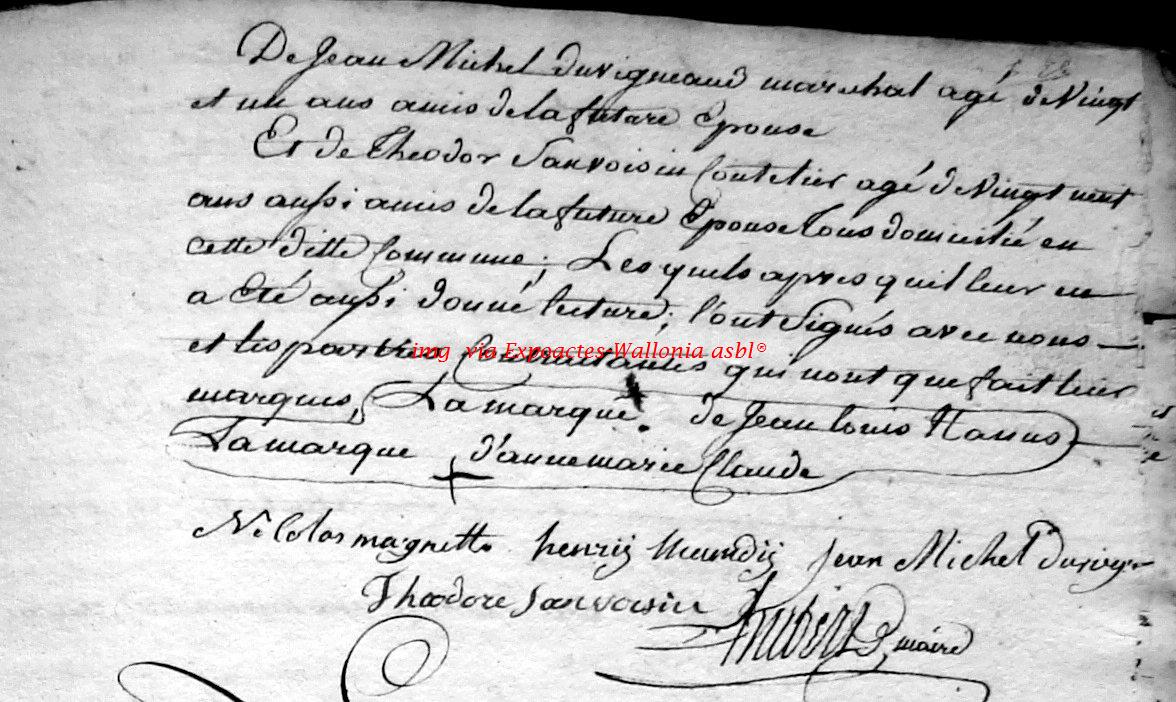 De Jean Michel duvigneaud marechal agé de Vingt
et un ans amis de la future Epouse
Et de Theodor Sanvoisin Coutelier agé de Vingt neuf
ans aussi amis de la future Epouse tous domicilié en
cette ditte Commune; Les quels apres quil leur en
a Eté aussi donné lecture; l'ont Signés avec nous
et les parties Contractantes qui nont que fait leur
marques, La marque de Jean louis Hanus
La marque d'anne marie Claude
Nicolas magnette henrij jean Michel duvig
Theodore Sanvoisin
maire
img via Expoactes Wallonia asbl®